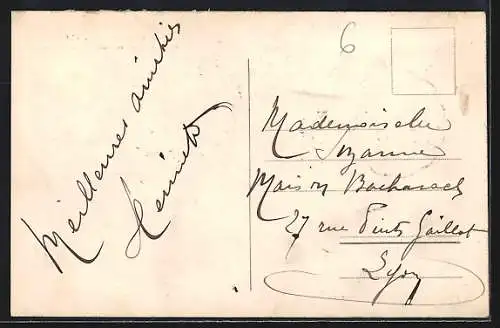 Meilleures amitiés
Henriette
6
Mademoiselle
Suzanne
Maison Bacharach
27 rue Puits Gaillot
Lyon